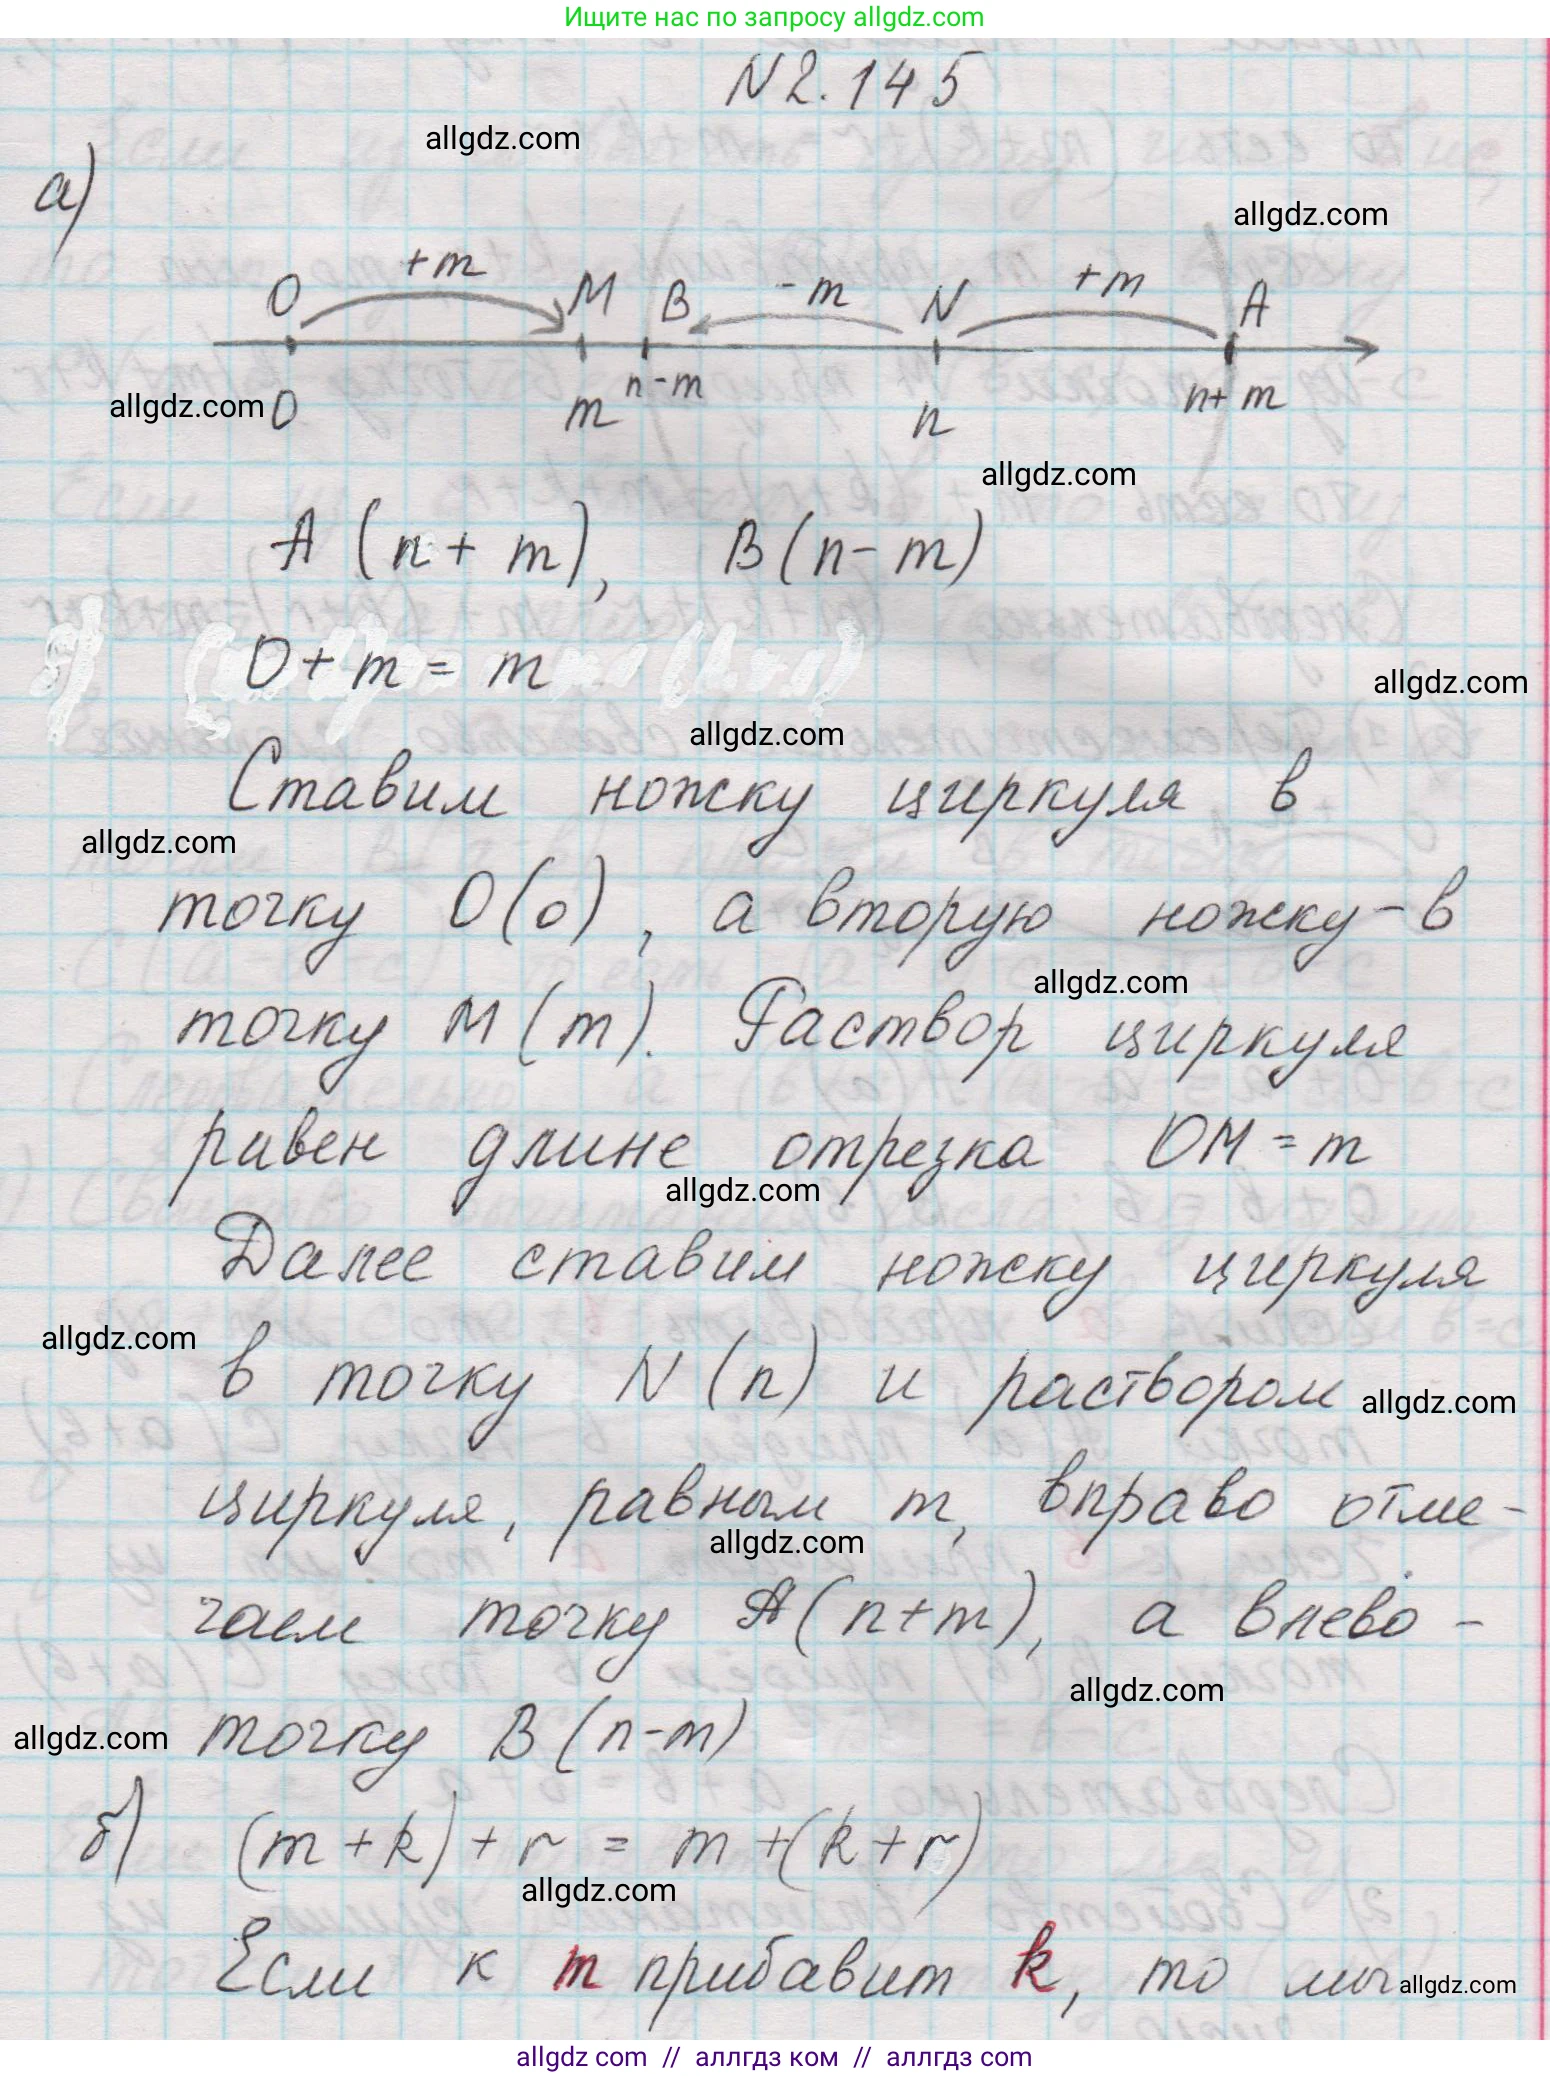 Ищите нас по запросу allgdz.com
N 2.145
allgdz.com
а)
allgdz.com
+m
O M B -m N +m A
allgdz.com
0 m n-m n n+m
allgdz.com
A (n + m), B (n - m)
0 + m = m
allgdz.com
allgdz.com
Ставим ножку циркуля в
allgdz.com
точку O(0), а вторую ножку - в
allgdz.com
точку M (m). Раствор циркуля
равен длине отрезка OM = m
allgdz.com
Далее ставим ножку циркуля
allgdz.com
в точку N (n) и раствором
allgdz.com
циркуля, равным m, вправо отме-
allgdz.com
чаем точку A (n+m), а влево -
allgdz.com
allgdz.com
точку B (n-m)
б) (m + k) + r = m + (k + r)
allgdz.com
Если к m прибавит k, то мы
allgdz.com
allgdz com // аллгдз ком // аллгдз com